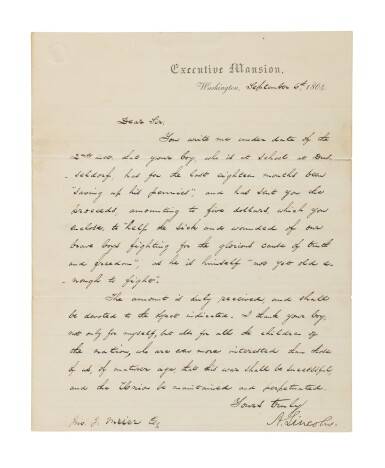 Executive Mansion,
Washington, September 5th, 1864.
Dear Sir.
You write me under date of the
2nd inst. that your boy, who is at school at Dus-
seldorf, has for the last eighteen months been
"saving up his pennies", and has sent you the
proceeds, amounting to five dollars, which you
enclose to "help the sick and wounded of our
brave boys fighting for the glorious cause of truth
and freedom", as he is himself "not yet old e-
nough to fight".
The amount is duly received, and shall
be devoted to the object indicated. I thank your boy,
not only for myself, but also for all the children of
the nation, who are even more interested than those
of us, of maturer age, that this war shall be successful,
and the Union be maintained and perpetuated.
Yours truly
A. Lincoln.
Jno. J. Meier Esq